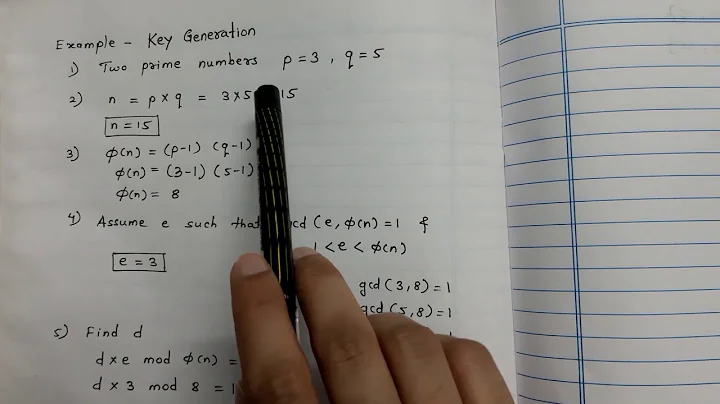 Example - Key Generation
1) Two prime numbers p = 3 , q = 5
2) n = p × q = 3 × 5 15
n = 15
3) φ(n) = (p-1) (q-1)
φ(n) = (3-1) (5-1)
φ(n) = 8
4) Assume e such that gcd (e, φ(n)) = 1 &
1 < e < φ(n)
e = 3
gcd (3, 8) = 1
gcd (5, 8) = 1
5) Find d
d × e mod φ(n) =
d × 3 mod 8 = 1